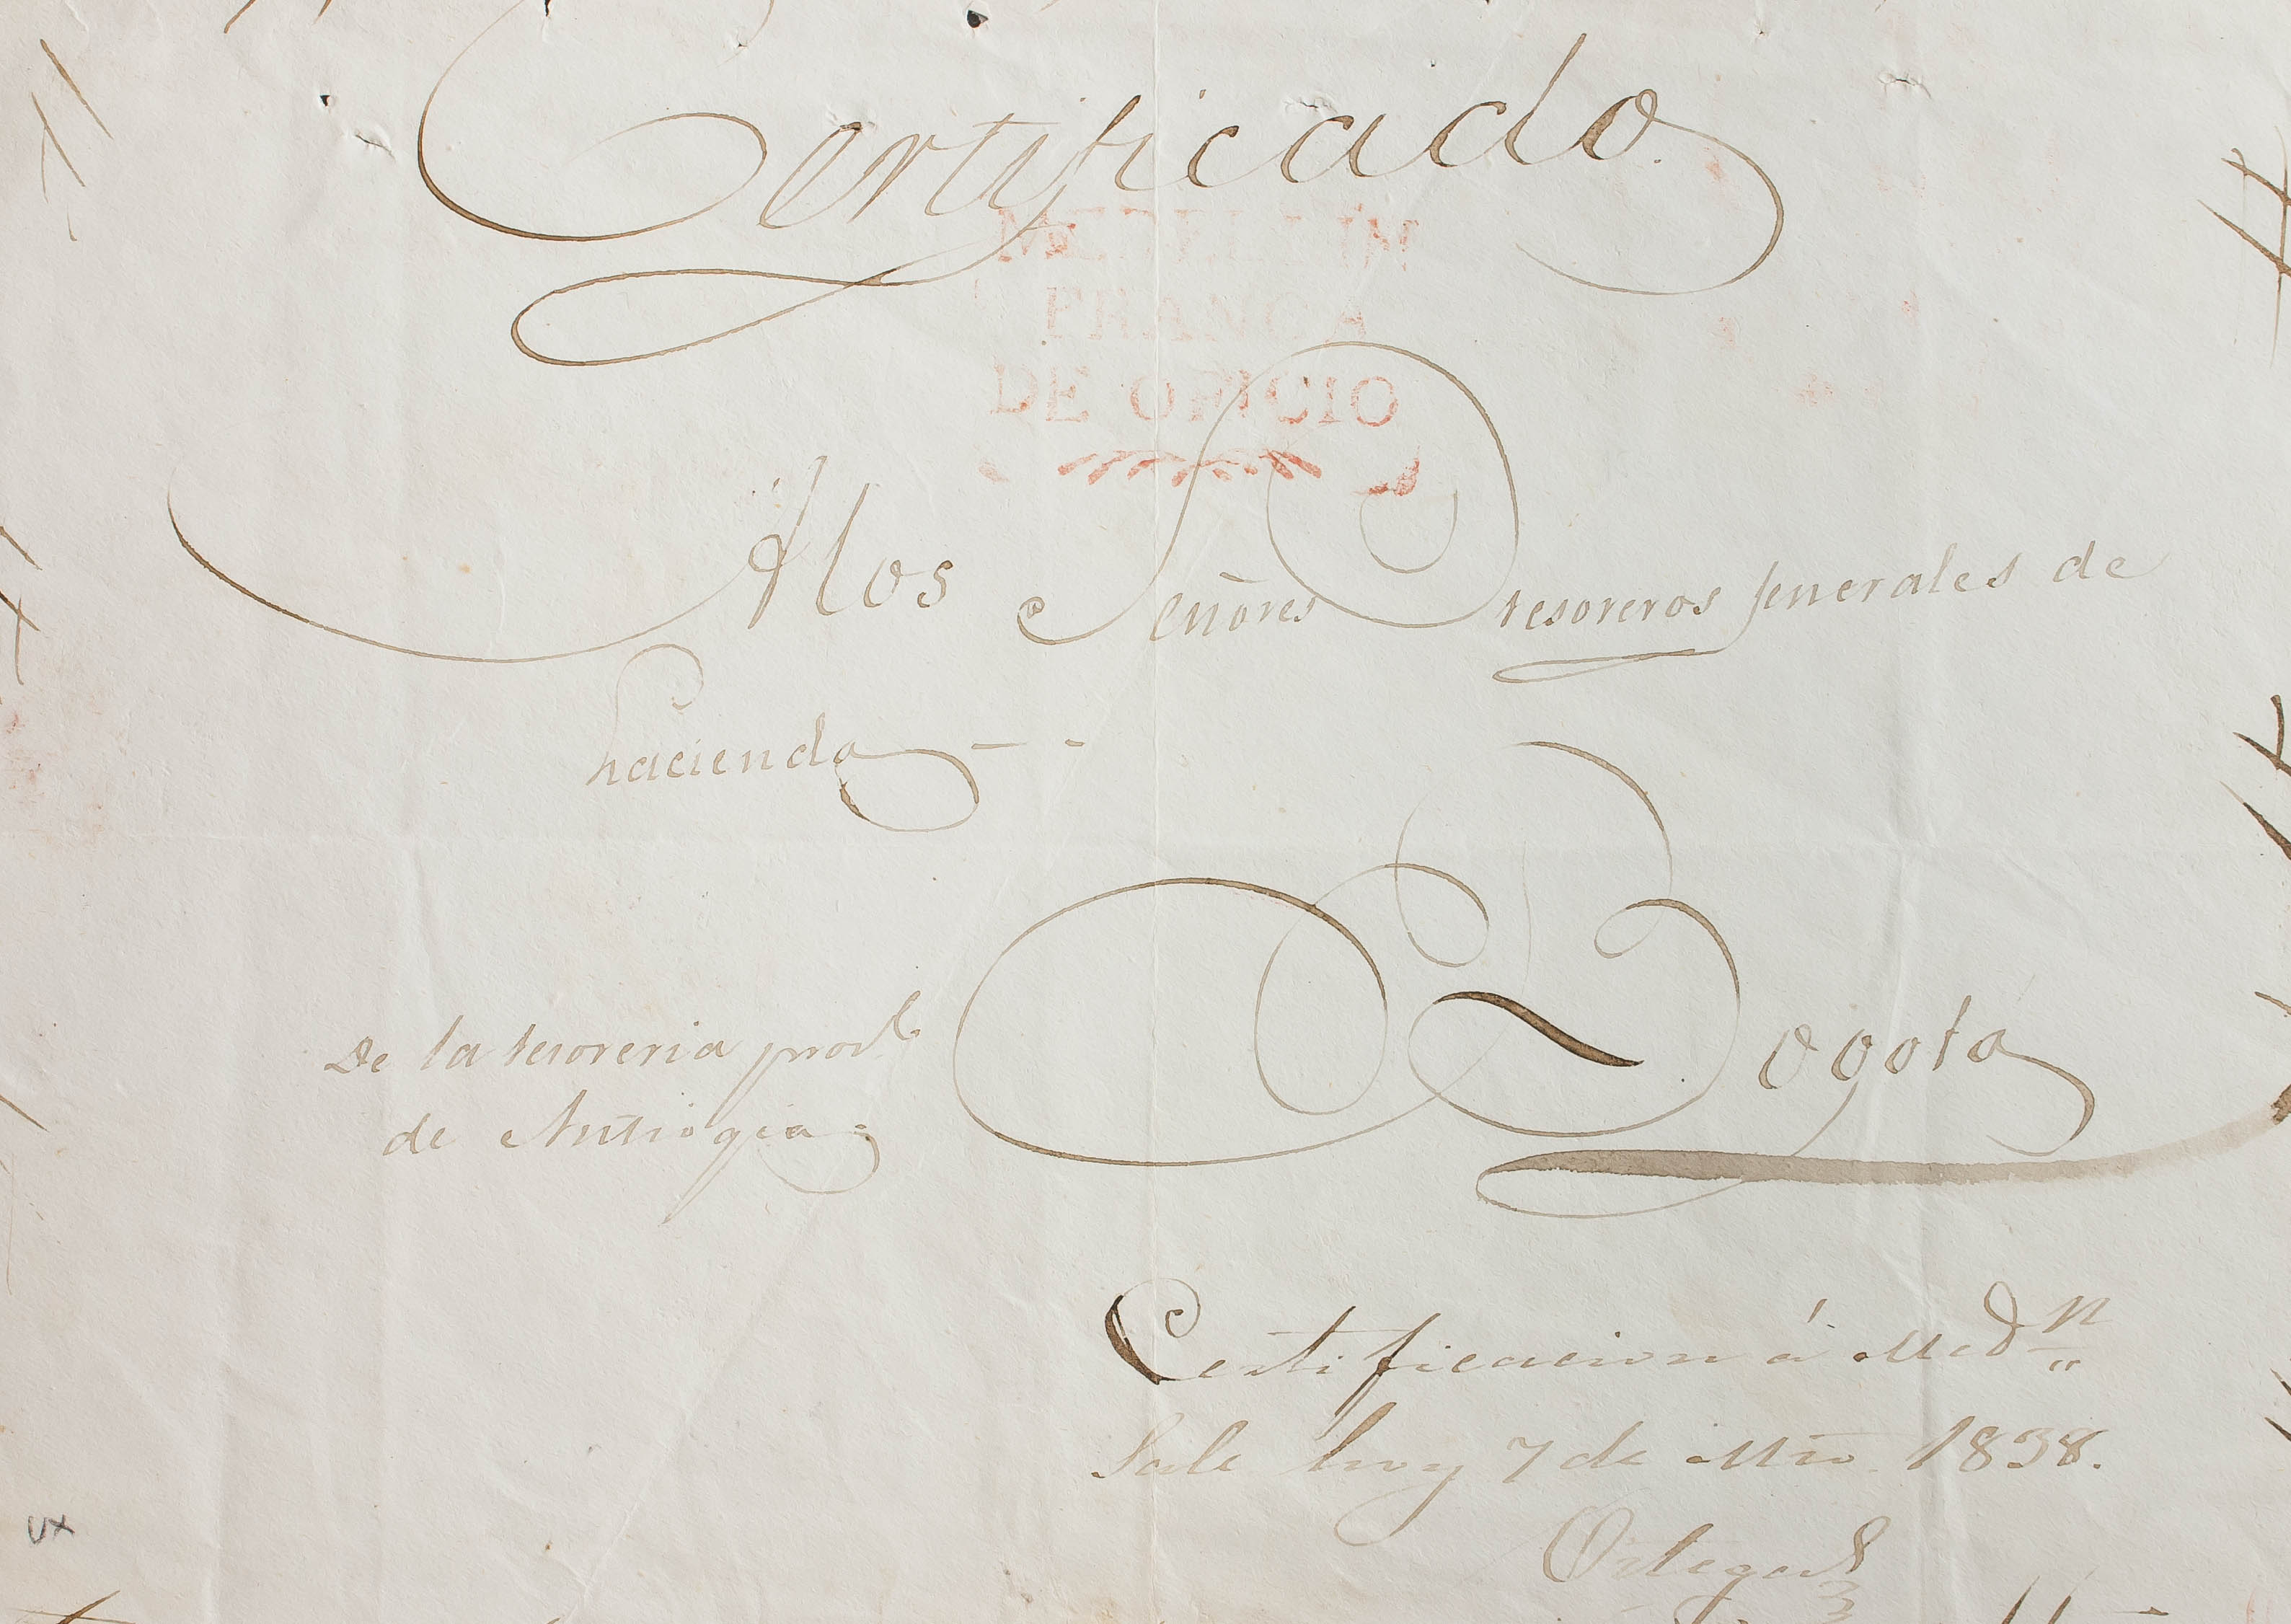 Certificado
MEDELLIN
FRANCA
DE OFICIO
A los Señores tesoreros jenerales de
hacienda - -
Bogotá
De la tesoreria prov.l
de Antioqia
Certificacion á Med.n
Sale hoy 7 de Mzo. 1838.
Ortega